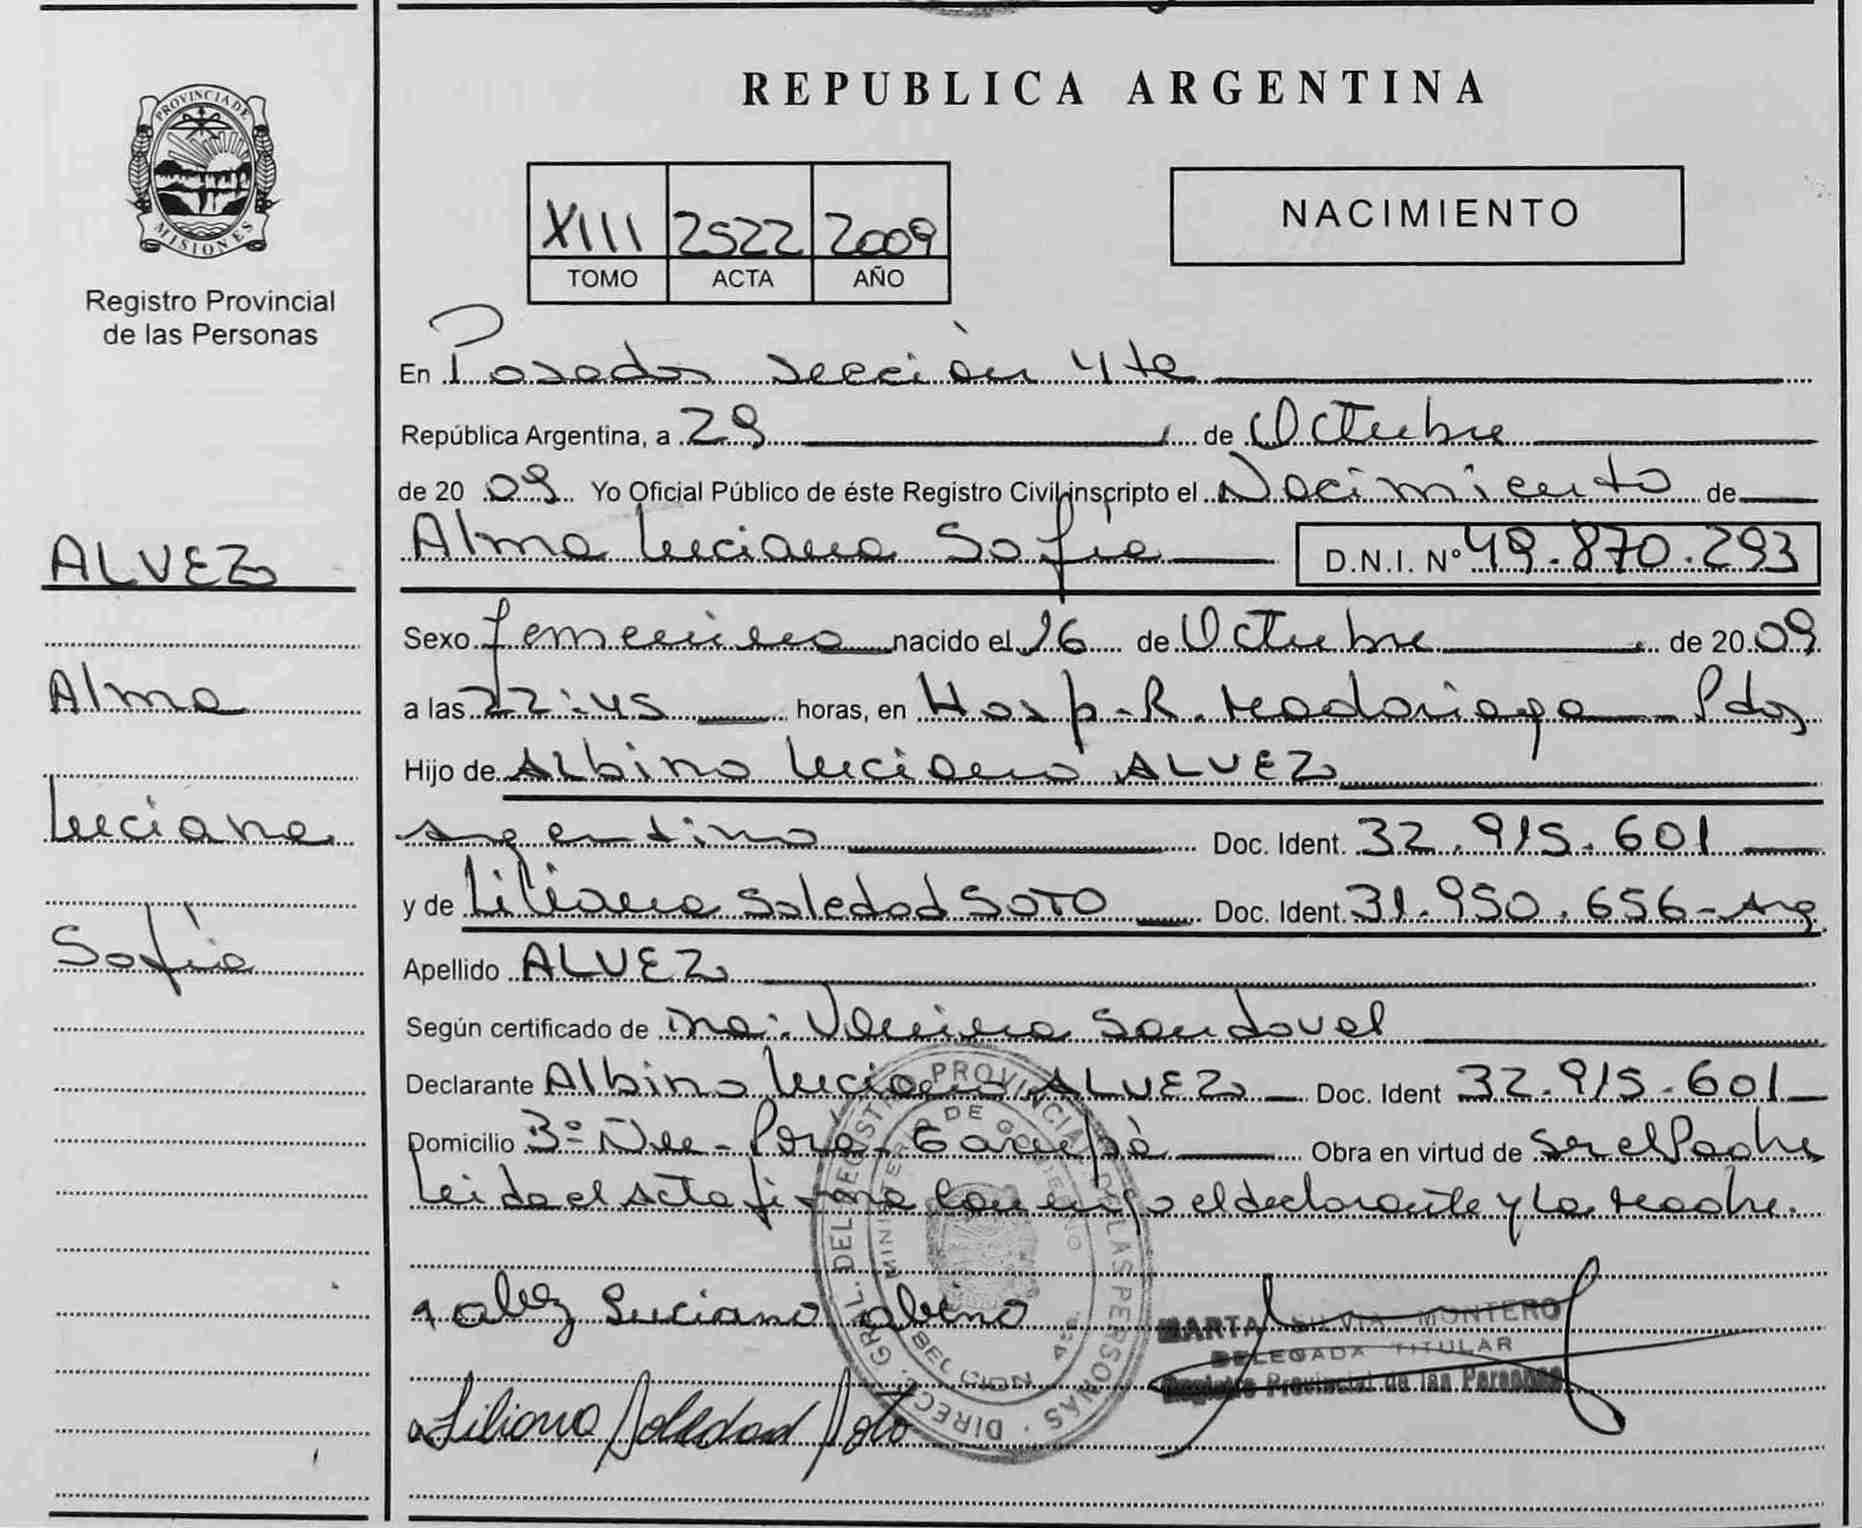 PROVINCIA DE
MISIONES
Registro Provincial
de las Personas
ALVEZ
Alma
Luciana
Sofía
REPUBLICA ARGENTINA
XIII 2522 2009
TOMO ACTA AÑO
NACIMIENTO
En Posadas sección 4ta
República Argentina, a 29 de Octubre
de 2009 Yo Oficial Público de éste Registro Civil inscripto el Nacimiento de
Alma Luciana Sofía D.N.I. Nº 49.870.293
Sexo femenino nacido el 26 de Octubre de 2009
a las 22:45 horas, en Hosp. R. Madariaga Pdas
Hijo de Albino Luciano ALVEZ
Argentino Doc. Ident. 32.915.601
y de Liliana Soledad SOTO Doc. Ident. 31.950.656-Arg.
Apellido ALVEZ
Según certificado de Sandoval
Declarante Albino Luciano ALVEZ Doc. Ident 32.915.601
Domicilio Garupá Obra en virtud de ser el Padre
Leida el Acta firma conmigo el declarante y la Madre.
Luciano
MARTA SILVIA MONTERO
DELEGADA TITULAR
Registro Provincial de las Personas
Liliana Soledad Soto
DIRECC. GRAL. DEL REGISTRO PROVINCIAL DE LAS PERSONAS
MINISTERIO DE GOBIERNO